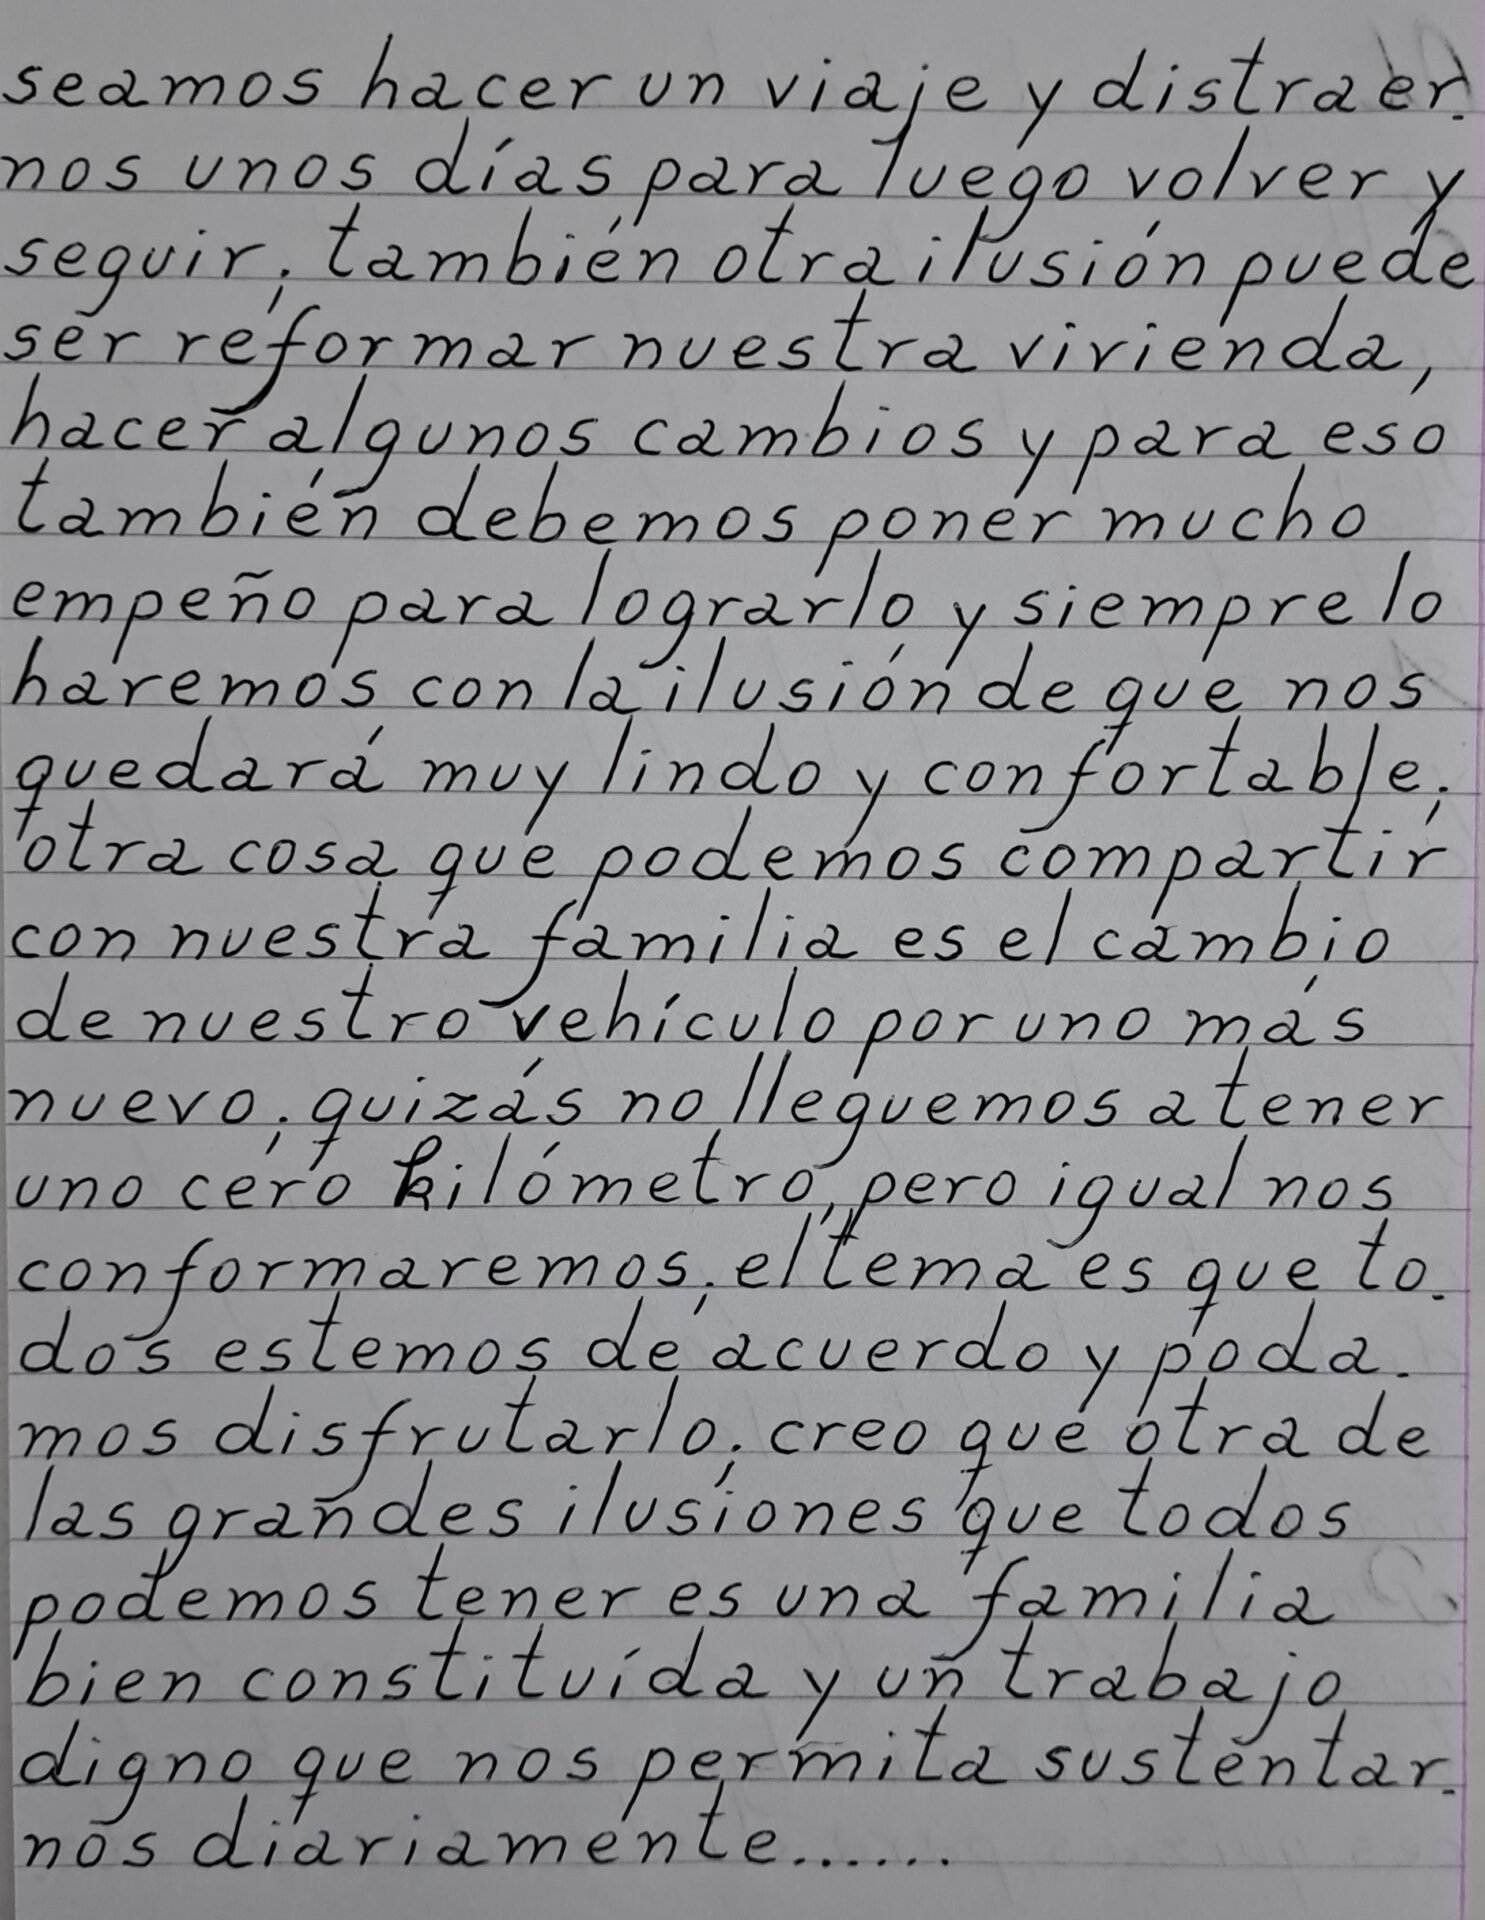 seamos hacer un viaje y distraer.
nos unos días para luego volver y
seguir; también otra ilusión puede
ser reformar nuestra vivienda,
hacer algunos cambios y para eso
también debemos poner mucho
empeño para lograrlo y siempre lo
haremos con la ilusión de que nos
quedará muy lindo y confortable;
otra cosa que podemos compartir
con nuestra familia es el cambio
de nuestro vehículo por uno más
nuevo; quizás no lleguemos a tener
uno cero kilómetro, pero igual nos
conformaremos; el tema es que to.
dos estemos de acuerdo y poda.
mos disfrutarlo; creo que otra de
las grandes ilusiones que todos
podemos tener es una familia
bien constituída y un trabajo
digno que nos permita sustentar.
nos diariamente......